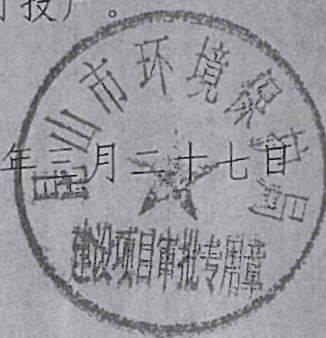 可投产。
昆山市环境保护局
年三月二十七日
建设项目审批专用章